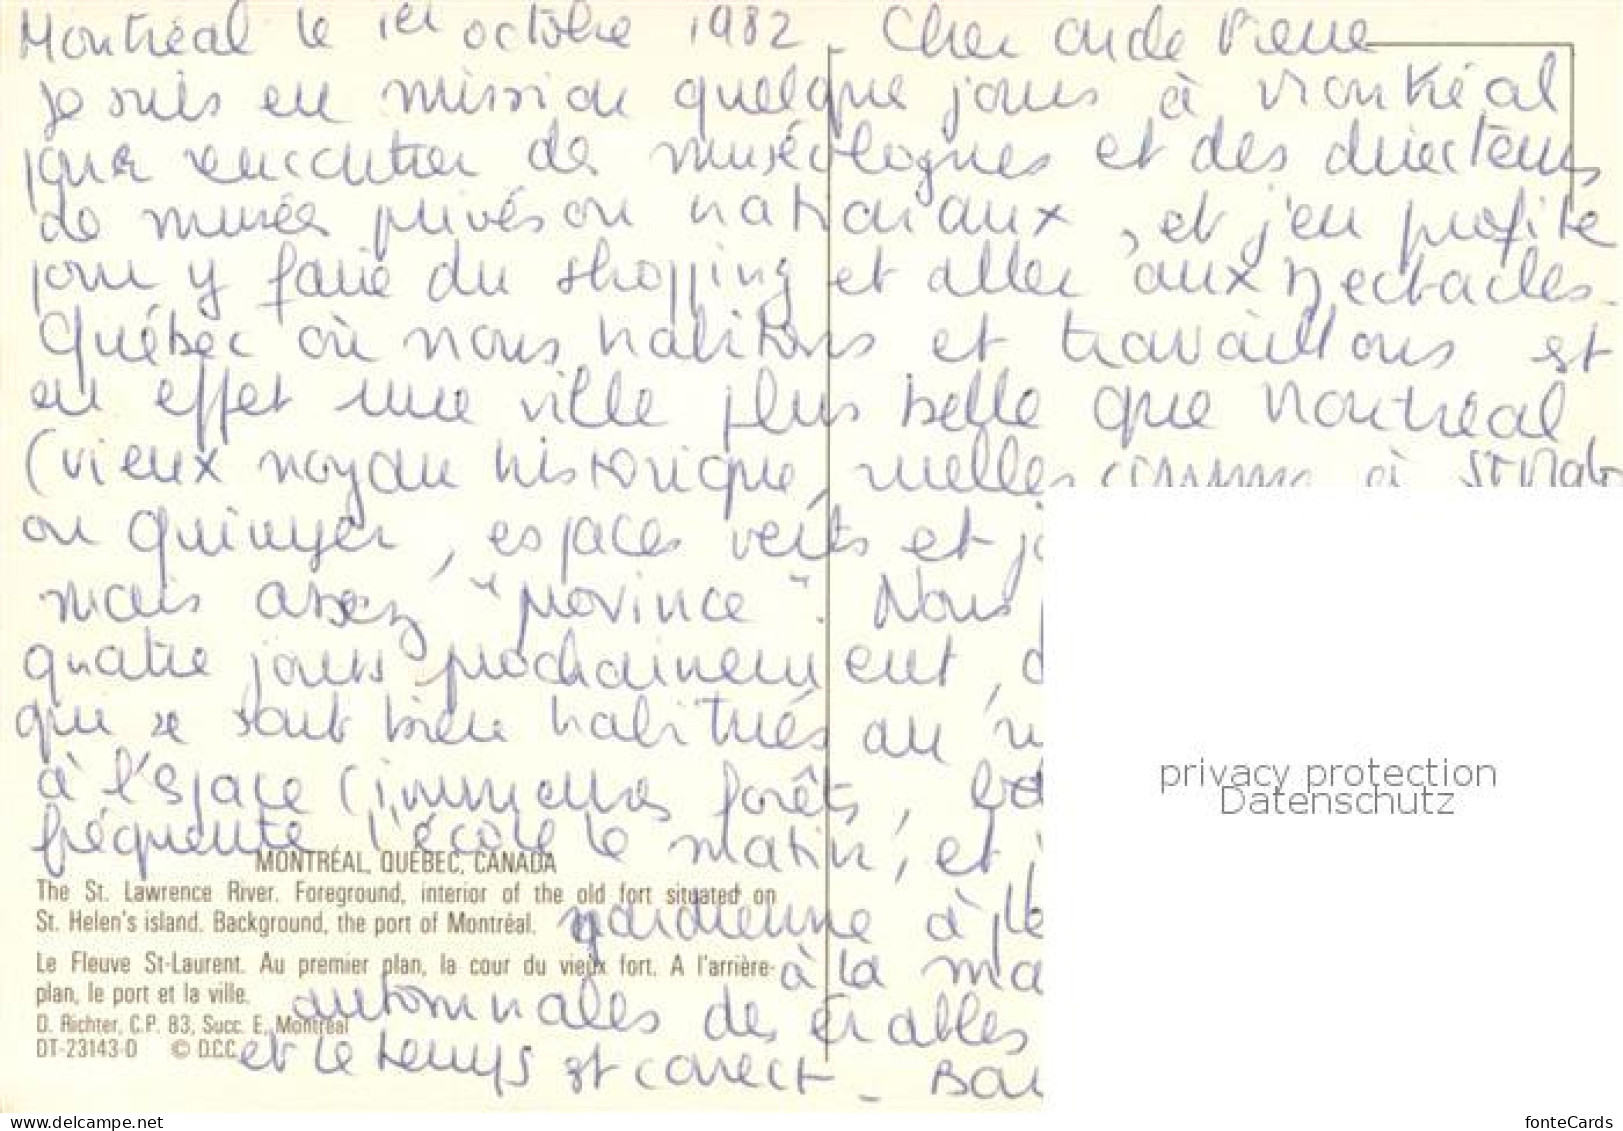 Montréal le 1er octobre 1982 - Cher oncle Pierre
Je suis en mission quelque jours à Montréal
pour rencontrer des muséologues et des directeurs
de musée privés ou nationaux, et j'en profite
pour y faire du shopping et aller aux spectacles.
Québec où nous habitons et travaillons est
en effet une ville plus belle que Montréal
(vieux noyau historique, ruelles comme à St Malo
ou Quimper, espaces verts et
mais assez "province". Nous
quatre jours prochainement,
qui se sont bien habitués au
à l'espace (immenses forêts,
fréquente l'école le matin, et
MONTRÉAL, QUÉBEC, CANADA
The St. Lawrence River. Foreground, interior of the old fort situated on
St. Helen's island. Background, the port of Montréal.
gardienne à
Le Fleuve St-Laurent. Au premier plan, la cour du vieux fort. A l'arrière-
plan, le port et la ville.
à la
automnales des érables
D. Richter, C.P. 83, Succ. E, Montréal
DT-23143-D © D.C.C.
et le temps est correct -
privacy protection
Datenschutz
www.delcampe.net
fonteCards